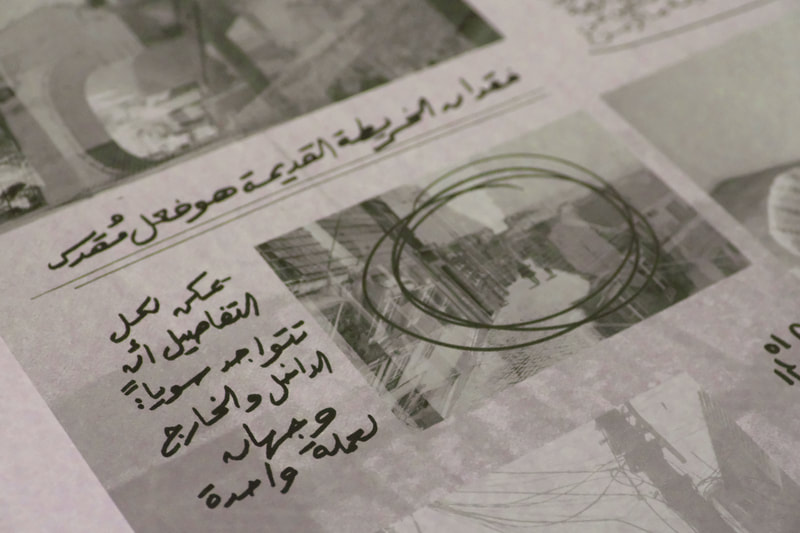 فقدان الخريطة القديمة هو فعل مُقدرك
يمكن لكل
التفاصيل أنّه
تتواجد سويا:
الداخل والخارج
وجهان
لعملة واحدة